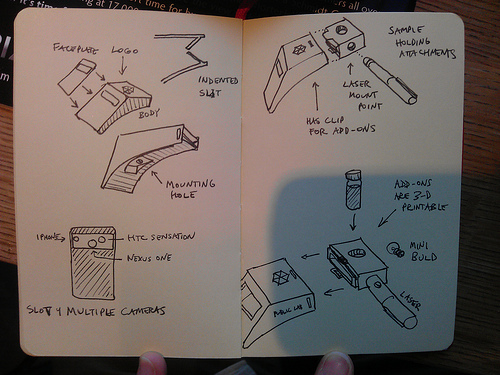 FACEPLATE LOGO
BODY
INDENTED
SLOT
MOUNTING
HOLE
IPHONE
HTC SENSATION
NEXUS ONE
SLOT 4 MULTIPLE CAMERAS
SAMPLE
HOLDING
ATTACHMENTS
LASER
MOUNT
POINT
HAS CLIP
FOR ADD-ONS
ADD-ONS
ARE 3-D
PRINTABLE
MINI
BULD
LASER